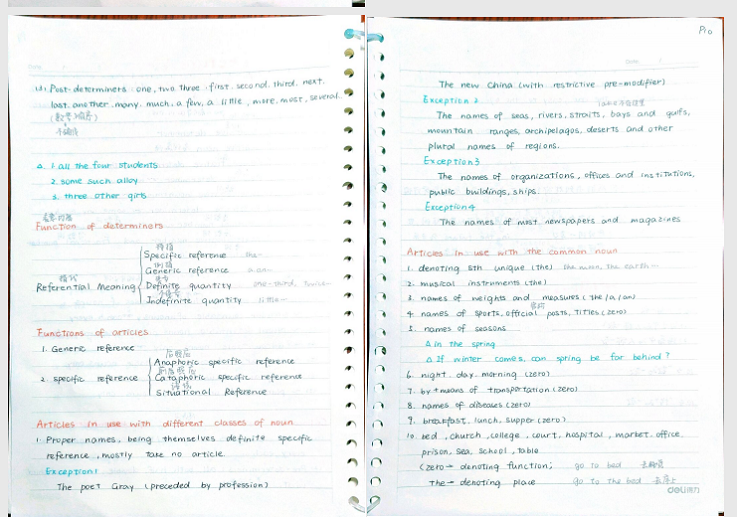 (3) Post-determiners: one, two three; first. second. third. next.
last. another. many. much. a few. a little, more. most, several.
△. 1. all the four students
2. some such alloy
3. three other girls
Function of determiners
Referential Meaning
Specific reference the
Generic reference a.an
Definite quantity one-third, twice
Indefinite quantity little
Functions of articles
1. Generic reference
2. specific reference
Anaphoric specific reference
Cataphoric specific reference
Situational Reference
Articles in use with different classes of noun
1. Proper names, being themselves definite specific
reference, mostly take no article.
Exception1
The poet Gray (preceded by profession)
P10
The new China (with restrictive pre-modifier)
Exception 2
The names of seas, rivers, straits, bays and gulfs,
mountain ranges, archipelagos, deserts and other
plural names of regions.
Exception3
The names of organizations, offices and institutions,
public buildings, ships.
Exception4
The names of most newspapers and magazines
Articles in use with the common noun
1. denoting sth unique (the) the moon, the earth
2. musical instruments (the)
3. names of weights and measures (the/a/an)
4. names of sports, official posts, titles (zero)
5. names of seasons
△ in the spring
△ If winter comes, can spring be far behind?
6. night. day. morning (zero)
7. by + means of transportation (zero)
8. names of diseases (zero)
9. breakfast, lunch, supper (zero)
10. bed, church, college, court, hospital, market, office,
prison, sea, school, table
(zero → denoting function; go to bed 去睡觉
the → denoting place go to the bed 去床上
deli